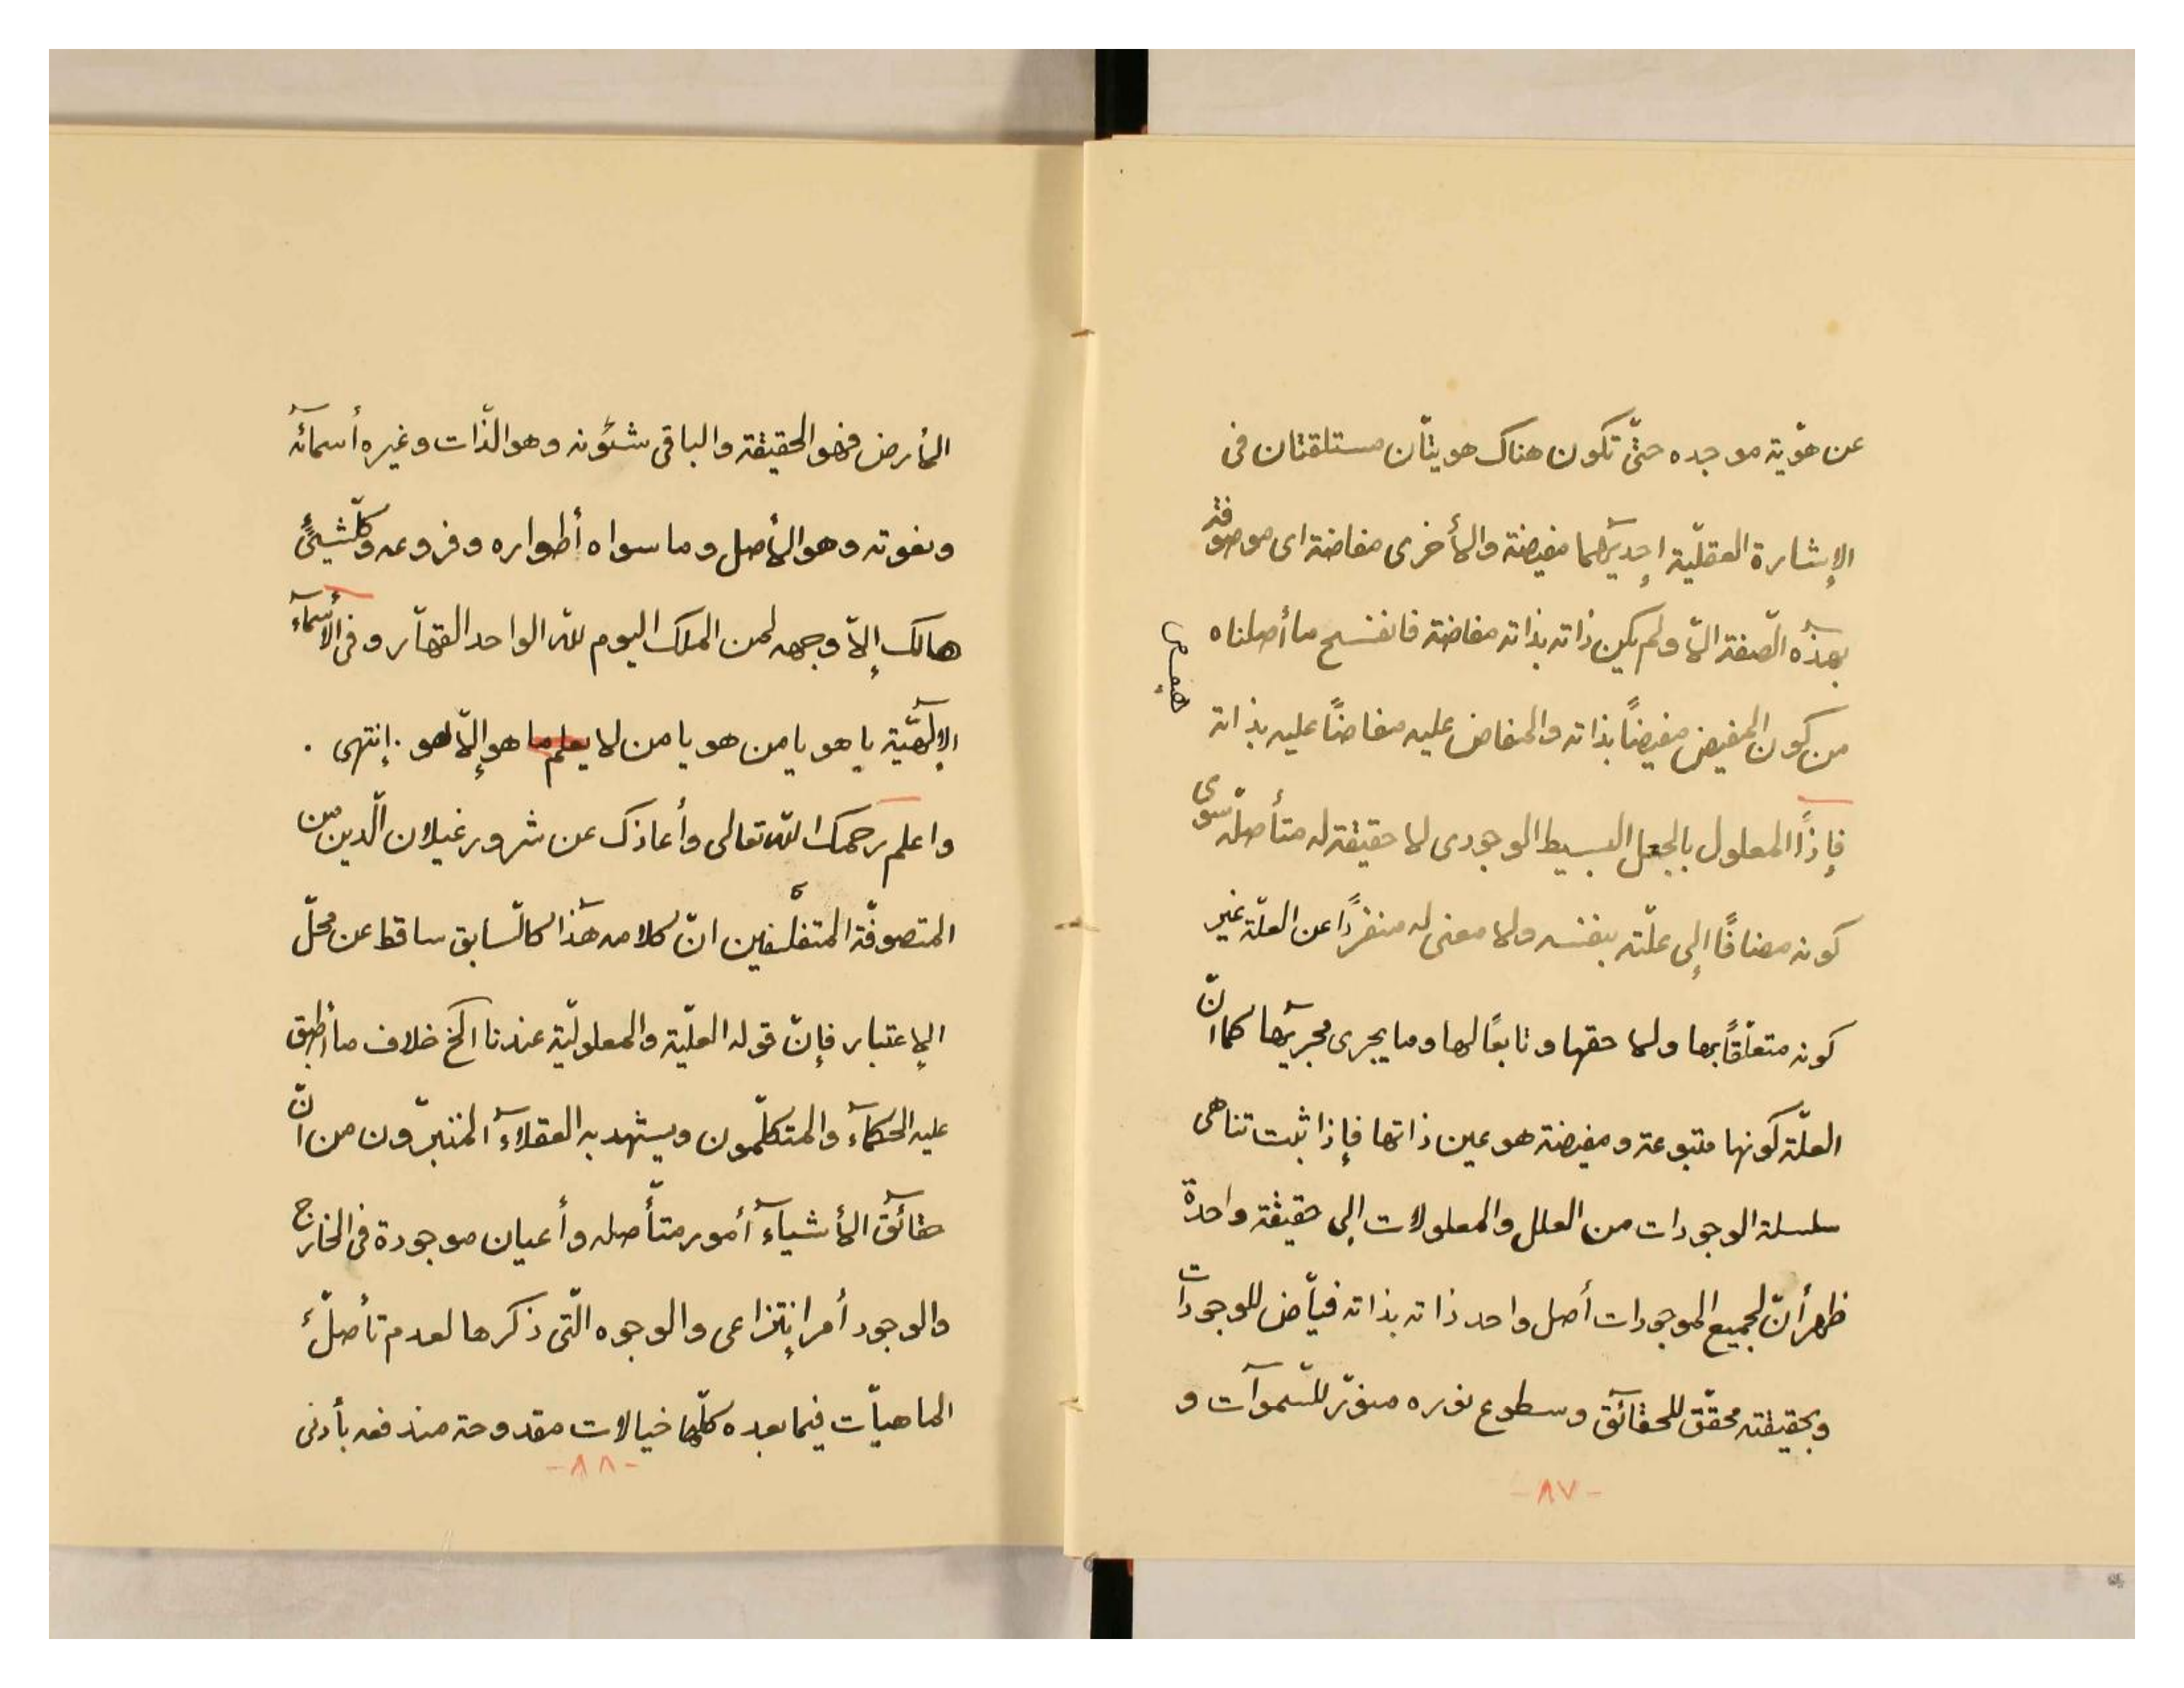 عن هوّية موجده حتّى تكون هناك هويتّان مستلقتان فى
الإشارة العقليّة إحديٓهما مفيضة والأخرى مفاضة اى موصوفة
بهٓذه الصّفة الّا ولم يكن ذاته بذاته مفاضة فانفسح ما أصلناه
من كون المفيض مفيضاً بذاته والمفاض عليه مفاضاً عليه بذاته
فإذاً المعلول بالجعل البسيط الوجودى لا حقيقة له متأصلّة سوى
كونه مضافًا إلى علّته بنفسه ولا معنى له منفردًا عن العلّة غير
كونه متعلّقًا بها ولا حقها وتابعًا لها وما يجرى مجريٓها كما انّ
العلّة كونها متبوعة ومفيضة هو عين ذاتها فإذا ثبت تناهى
سلسلة الوجودات من العلل والمعلولات إلى حقيقة واحدة
ظهر أنّ لجميع الموجودات أصل واحد ذاته بذاته فيّاض للوجودات
وبحقيقته محقّق للحقآئق وسطوع نوره منوّر للسّموآت و
-٨٧-
الأرض فهو الحقيقة والباقى شئونه وهو الذّات وغيره أسمآئه
ونعوته وهو الأصل وما سواه أطواره وفروعه وكلّشيئًى
هالك إلّا وجهه لمن الملك اليوم للّه الواحد القهّار وفى الأسمآء
الإلٓهيّة يا هو يا من هو يا من لا يعلم ما هو إلّا هو . إنتهى .
واعلم رحمك اللّه تعالى وأعاذك عن شرور غيلان الّدين من
المتصوفّة المتفلّسفين انّ كلامه هٓذا كالسّابق ساقط عن محلّ
الإعتبار فإنّ قوله العليّة والمعلوليّة عندنا الخ خلاف ما أطبق
عليه الحكمآء والمتكلّمون ويشهد به العقلآء المتبرّون من انّ
حقآئق الأشيآء أمور متأصّله وأعيان موجودة فى الخارج
والوجود أمر إنتزاعى والوجوه الّتى ذكرها لعدم تأصلّ
الماهيّات فيما بعده كلّها خيالات مقدوحة مندفعه بأدنى
-٨٨-